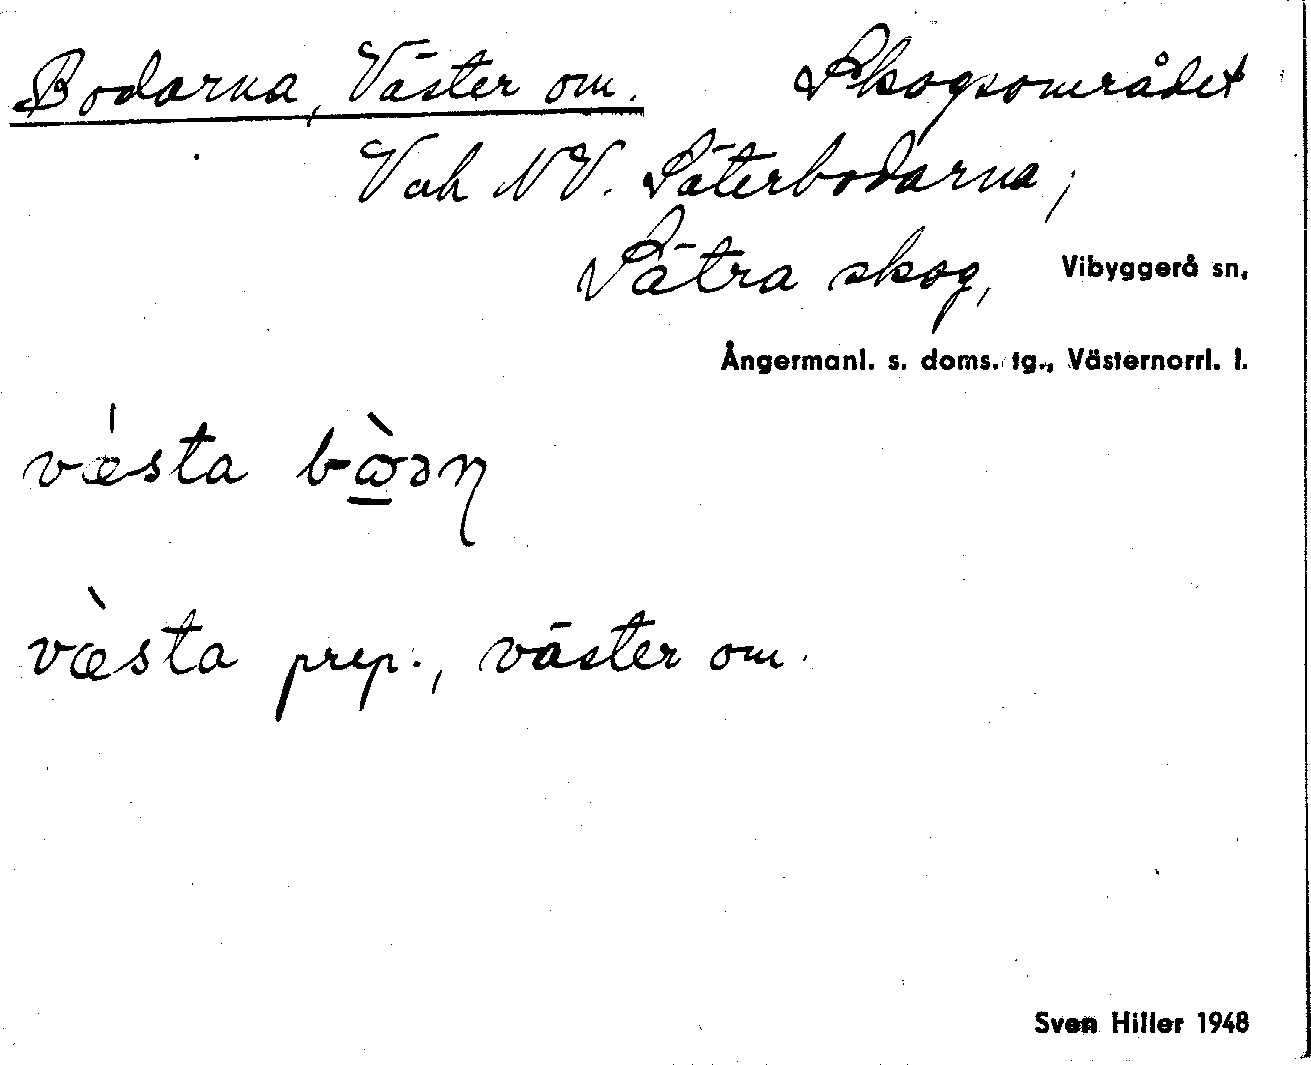 Bodarna, Väster om. Skogsområdet
V och NV. Säterbodarna,
Sätra skog, Vibyggerå sn,
Ångermanl. s. doms. tg., Västernorrl. l.
væ̀sta
væ̀sta prep., väster om.
Sven Hiller 1948